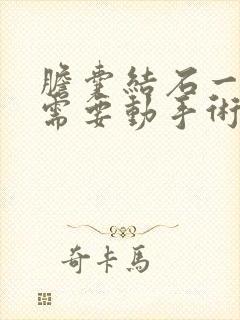 膽囊結石一
需要動手術
奇卡馬